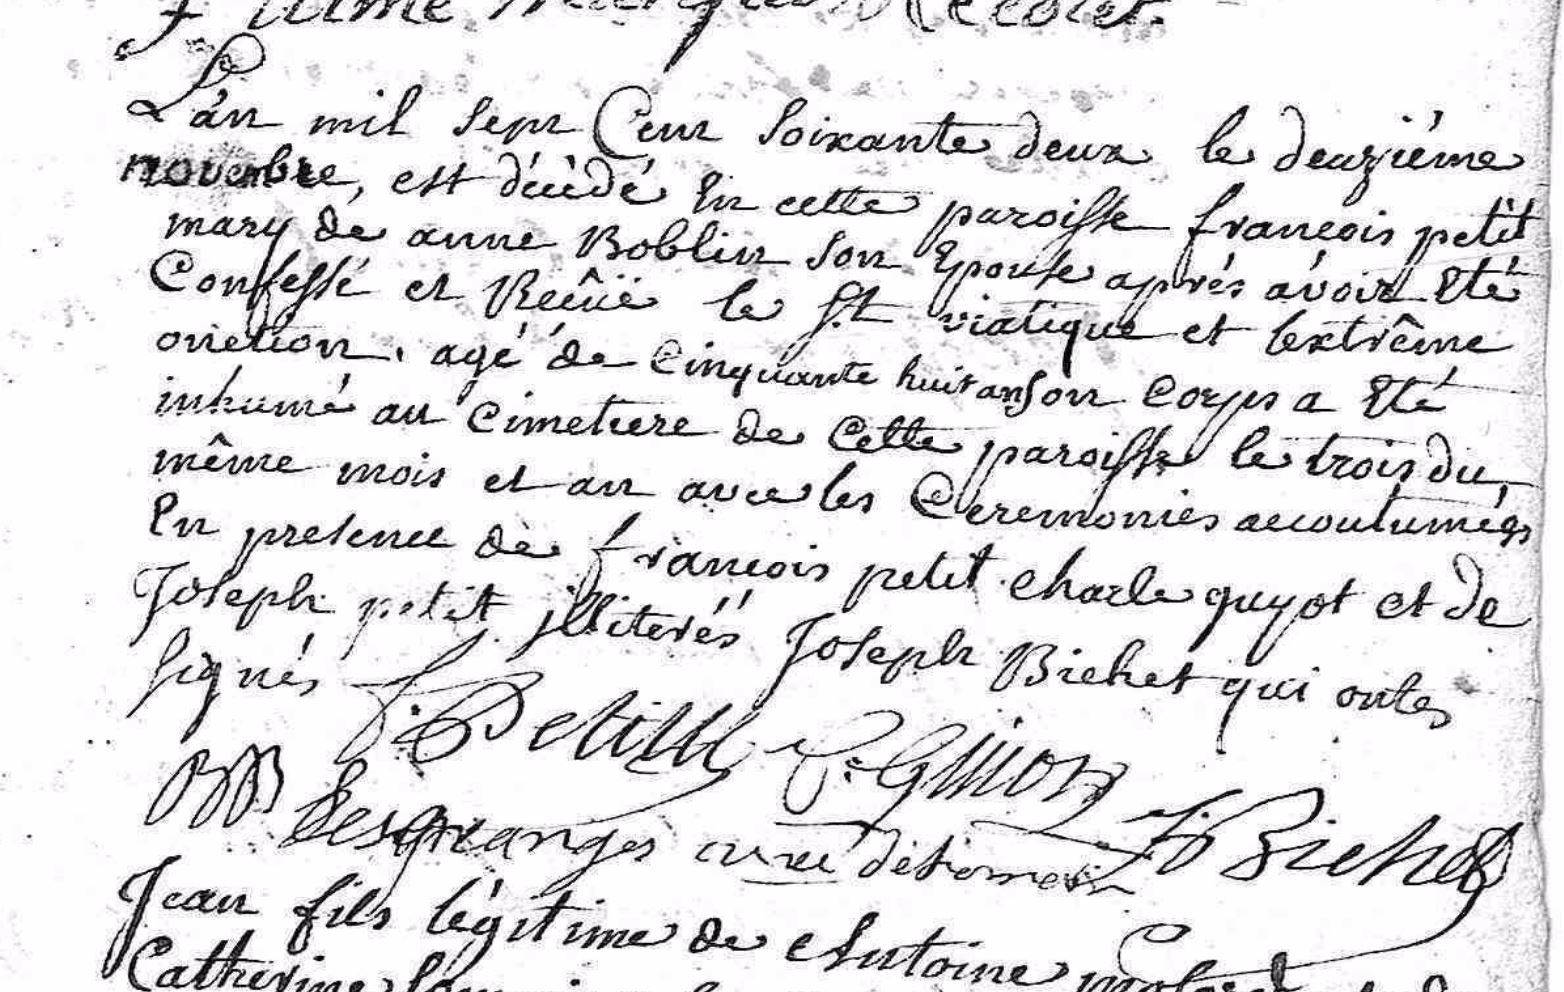 Recolet.
L'an mil sept Cent soixante deux le deuziéme
novembre, est décédé En cette paroisse françois petit
mary dé anne Boblin son Epouse aprés avoir Eté
Confessé et Reçüe le St viatique et lextrême
onction. agé de Cinquante huit an son Corps a Eté
inhumé au Cimetiere de Cette paroisse le trois du
même mois et an avec les Ceremonies accoutumées
En presence dé françois petit charle guyot et de
Joseph petit illiterés Joseph Bichet qui ont
signés f. Petit C. Guiot
Desgranges curé J Bichet
Jean fils légitime de Antoine
Catherine